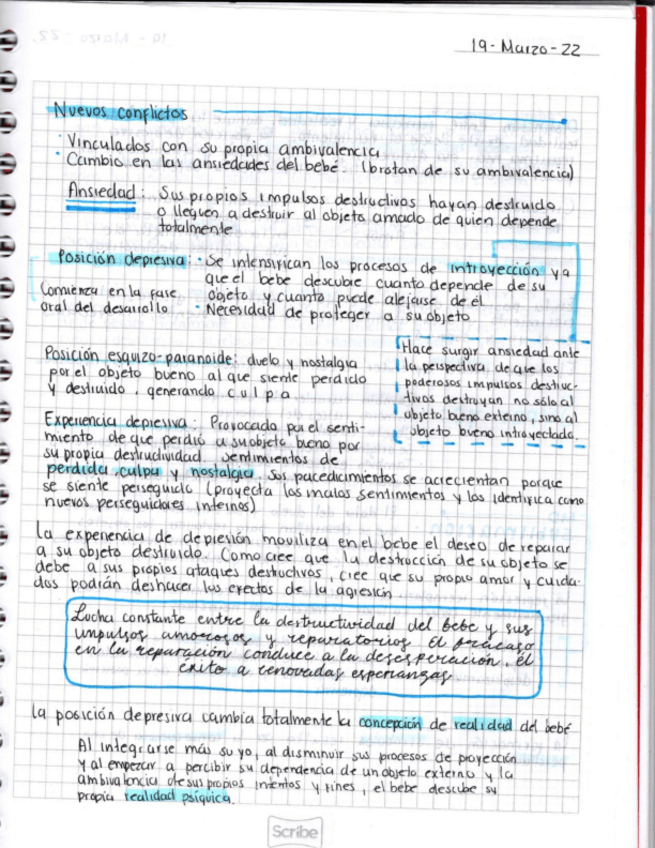 19-Marzo-22
Nuevos conflictos
· Vinculados con su propia ambivalencia
· Cambio en las ansiedades del bebé. (brotan de su ambivalencia)
Ansiedad: Sus propios impulsos destructivos hayan destruido
o lleguen a destruir al objeto amado de quien depende
totalmente
Posición depresiva: · Se intensifican los procesos de introyección ya
que el bebe descubre cuanto depende de su
objeto y cuanto puede alejarse de él
· Necesidad de proteger a su objeto
Comienza en la fase
oral del desarrollo
Posición esquizo-paranoide: duelo y nostalgia
por el objeto bueno al que siente perdido
y destruido, generando culpa
Hace surgir ansiedad ante
la perspectiva de que los
poderosos impulsos destruc-
tivos destruyan no sólo al
objeto bueno externo, sino al
objeto bueno introyectado.
Experiencia depresiva: Provocado por el senti-
miento de que perdió a su objeto bueno por
su propia destructividad. Sentimientos de
perdida, culpa y nostalgia. Sus padecimientos se acrecientan porque
se siente perseguido (proyecta los malos sentimientos y los identifica como
nuevos perseguidores internos)
La experiencia de depresión moviliza en el bebe el deseo de reparar
a su objeto destruido. Como cree que la destrucción de su objeto se
debe a sus propios ataques destructivos, cree que su propio amor y cuida-
dos podrán deshacer los efectos de la agresión.
Lucha constante entre la destructividad del bebe y sus
impulsos amorosos y reparatorios. El fracaso
en la reparación conduce a la desesperación, él
éxito a renovadas esperanzas
La posición depresiva cambia totalmente la concepción de realidad del bebé
Al integrarse más su yo, al disminuir sus procesos de proyección
y al empezar a percibir su dependencia de un objeto externo y la
ambivalencia de sus propios intentos y fines, el bebe descube su
propia realidad psíquica.
Scribe